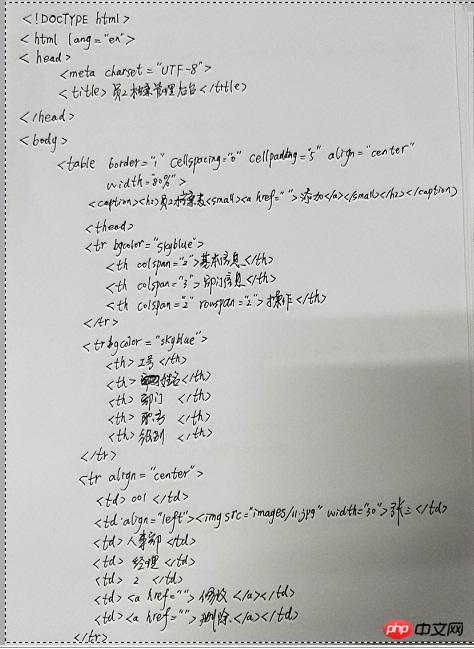 <!DOCTYPE html>
<html lang="en">
<head>
<meta charset="UTF-8">
<title>员工档案管理后台</title>
</head>
<body>
<table border="1" cellspacing="0" cellpadding="5" align="center"
width="80%">
<caption><h2>员工档案表<small><a href="">添加</a></small></h2></caption>
<thead>
<tr bgcolor="skyblue">
<th colspan="2">基本信息</th>
<th colspan="3">部门信息</th>
<th colspan="2" rowspan="2">操作</th>
</tr>
<tr bgcolor="skyblue">
<th>工号</th>
<th>姓名</th>
<th>部门</th>
<th>职务</th>
<th>级别</th>
</tr>
<tr align="center">
<td>001</td>
<td align="left"><img src="images/11.jpg" width="30">张三</td>
<td>人事部<td>
<td>经理</td>
<td>2</td>
<td><a href="">修改</a></td>
<td><a href="">删除</a></td>
</tr>
php中文网